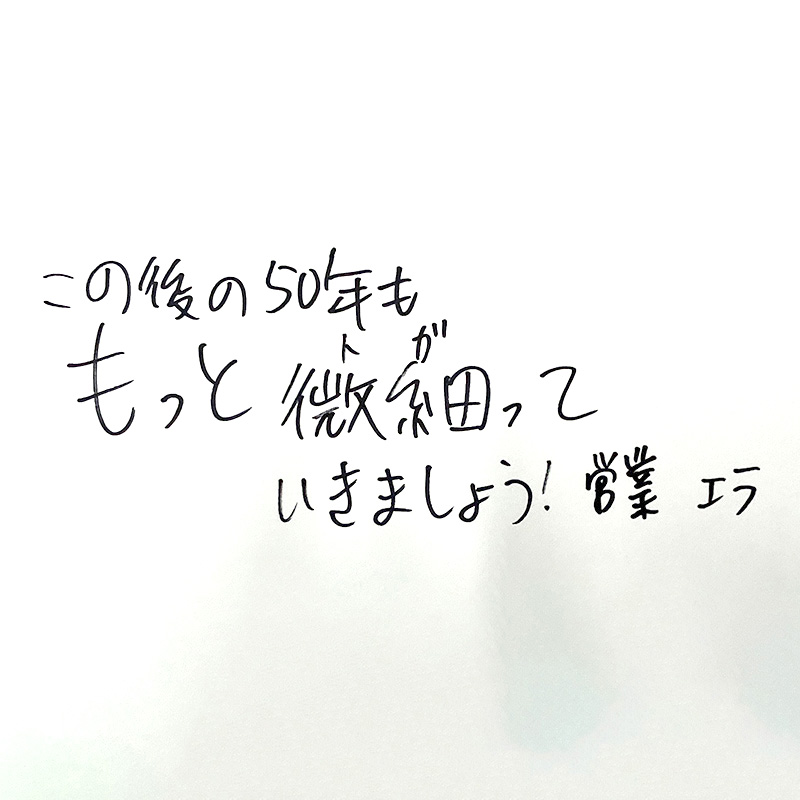 この後の50年も
トガ
もっと微細って
いきましょう! 営業 エラ